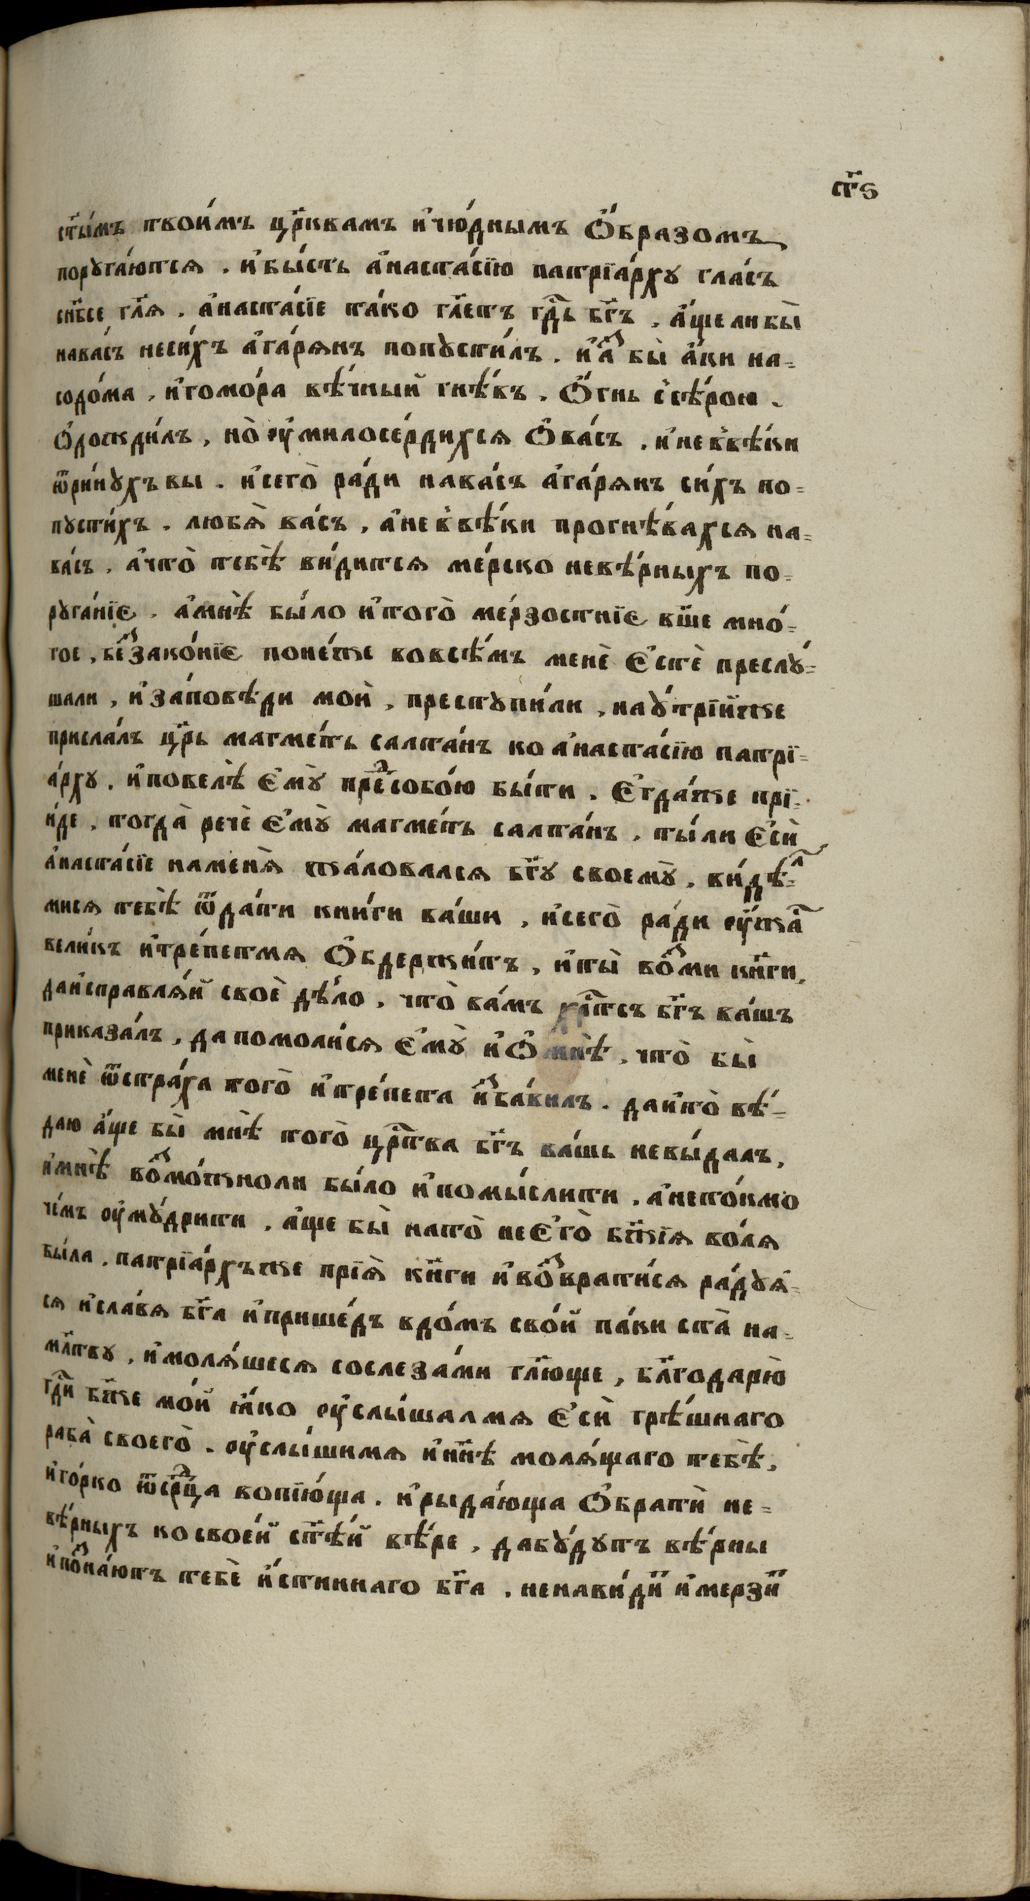 с҃ѕ
ст҃ы́мъ твои́мъ цр҃квамъ и҆чю́днымъ Ѻ҆́бразомъ
порꙋга́ются . и҆бы́сть а҆наста́сїю патрїа́рхꙋ гла́съ
снб҃се гл҃я . а҆наста́сїе та́ко гл҃етъ гд҇ь бг҃ъ , а҆́ще ли бы̀
нава́съ неси́хъ а҆га́рянъ попꙋсти́лъ . и҆з̾ꙗ бы̀ а҆́ки на=
содо́ма , и҆гомо́ра вѣ́чный гнѣ́въ . Ѻ҆́гнь с̾сѣ́рою .
Ѻ҆дожди́лъ , но̀ оу҆милосе́рдихся Ѻ҆ва́съ . и҆нев̾вѣ́ки
ѿри́нꙋхъ вы . и҆сего̀ ра́ди нава́съ а҆га́рянъ си́хъ по=
пꙋсти́хъ . любѧ̀ ва́съ , а҆нев̾вѣ́ки прогнѣ́вахся на=
ва́съ . а҆что̀ тебѣ̀ ви́дится ме́рско невѣ́рныхъ по=
рꙋга́нїе . а҆мнѣ̀ бы́ло и҆того̀ ме́рзостнїе ва҃ше мно́=
гое , беззако́нїе поне́же вовсѣ́мъ менѐ Є҆стѐ преслꙋ́=
шали , и҆за́повѣди моѝ , престꙋпи́ли , наꙋ́трїйже
присла́лъ цр҃ь магме́тъ салта́нъ ко а҆наста́сїю патрї=
а́рхꙋ . и҆повелѣ̀ Є҆мꙋ̀ предсобо́ю бы́ти . Є҆гда́же прї=
и́де , тогда̀ речѐ Є҆мꙋ̀ магме́тъ салта́нъ . ты́ли Є҆сѝ
а҆наста́сїе наменѧ̀ жа́ловался бг҃ꙋ своемꙋ̀ , ви́дѣл=
мися тебѣ̀ ѿда́ти кни́ги ва́ши , и҆сего̀ ра́ди оу҆́жас
вели́къ и҆тре́петмя Ѻ҆бдержи́тъ , и҆ты̀ возми кн҃ги,
даи҆справлѧ́й своѐ дѣ́ло . что̀ ва́мъ хрі́стсъ бг҃ъ ва́шъ
приказа́лъ , да помоли́ся Є҆мꙋ̀ и҆Ѻ҆ мнѣ̀ , что̀ бы̀
менѐ ѿстра́ха того̀ и҆тре́пета и҆зба́вилъ . даи҆то̀ вѣ́=
даю а҆́ще бы̀ мнѣ̀ того̀ цр҇тва бг҃ъ ва́шъ невы́далъ,
и҆мнѣ̀ возмо́жноли бы́ло и҆помы́слити . а҆нето́кмо
чи́мъ оу҆мꙋ́дрити . а҆́ще бы̀ нато̀ неЄ҆го̀ бж҃їя во́ля
была . патрїа́рхъже прїѧ̀ кн҃ги и҆возврати́ся ра́дꙋѧ=
ся и҆сла́вя бг҃а и҆прише́дъ вдо́мъ сво́й па́ки ста̀ на=
мл҃твꙋ , и҆молѧ́шеся сослеза́ми гл҃юще , бл҃годарю̀
гд҇и бж҃е мо́й ꙗ҆́ко оу҆слы́шалмя Є҆сѝ грѣ́шнаго
раба̀ своего̀ . оу҆слы́шимя и҆нн҃ѣ молѧ́щаго тебѣ̀,
и҆го́рко ѿсрдца вопїю́ща . и҆рыда́юща Ѻ҆братѝ не=
вѣ́рныхъ косвое́й ст҃ѣ́й вѣ́ре , дабꙋ́дꙋтъ вѣ́рны
и҆позна́ютъ тебѐ и҆́стиннаго бг҃а . ненави́дй и҆мерзй